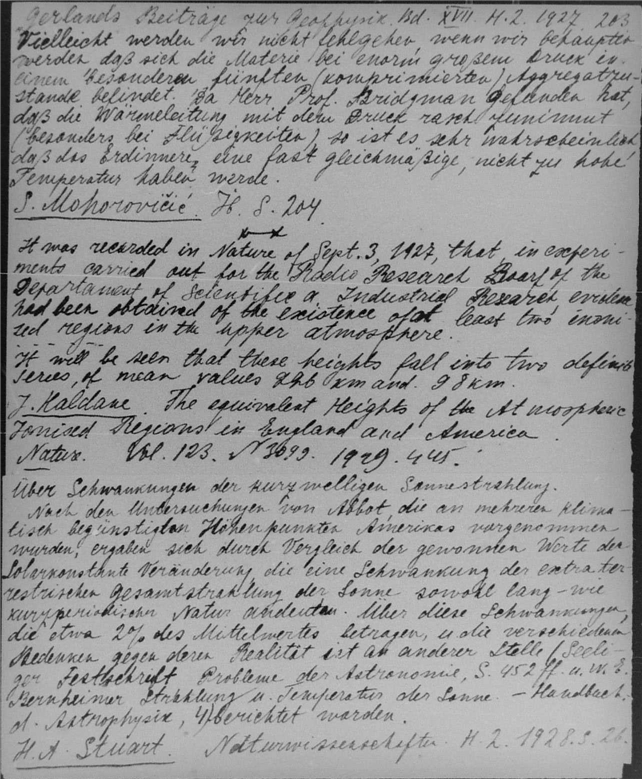 Gerlands Beiträge zur Geophysik Bd. XVII. H. 2. 1927 203
Vielleicht werden wir nicht fehlgehen wenn wir behaupten
werden daß sich die Materie bei enorm großem Druck in
einem besonderen fünften (komprimierten) Aggregatzu-
stande befindet. Da Herr Prof. Bridgman gefunden hat,
daß die Wärmeleitung mit dem Druck rasch zunimmt
(besonders bei Flüßigkeiten) so ist es sehr wahrscheinlich
daß das Erdinnere, eine fast gleichmäßige, nicht zu hohe
Temperatur haben werde.
S. Mohorovičić. H. S. 204
It was recorded in Nature of Sept. 3, 1927, that, in experi-
ments carried out for the Radio Research Board of the
Departament of Scientific a. Industrial Research evidence
had been obtained of the existence of at least two ioni-
zed regions in the upper atmosphere.
It will be seen that these heights fall into two definite
series, of mean values 226 km and 98 km.
J. Haldane. The equivalent Heights of the Atmospheric
Ionised Regions in England and America
Nature. Vol. 123. N 3099. 1929. 445.
Über Schwankungen der kurzwelligen Sonnestrahlung.
Nach den Untersuchungen von Abbot, die an mehreren klima-
tisch begünstigten Höhenpunkten Amerikas vorgenommen
wurden, ergaben sich durch Vergleich der gewonnen Werte der
Solarkonstante Veränderung, die eine Schwankung der extrater-
restrischen Gesamtstrahlung der Sonne sowohl lang- wie
kurzperiodischer Natur andeuten. Über diese Schwankungen,
die etwa 2% des Mittelwertes betragen, u. die verschiedenen
Bedenken gegen deren Realität ist an anderer Stelle (Seeli-
ger Festschrift Probleme der Astronomie, S. 452 ff. u. W. E.
Bernheimer Strahlung u. Temperatur der Sonne. – Handbuch.
d. Astrophysik, 4) berichtet worden.
H. A. Stuart. Naturwissenschaften H. 2. 1928. S. 26.